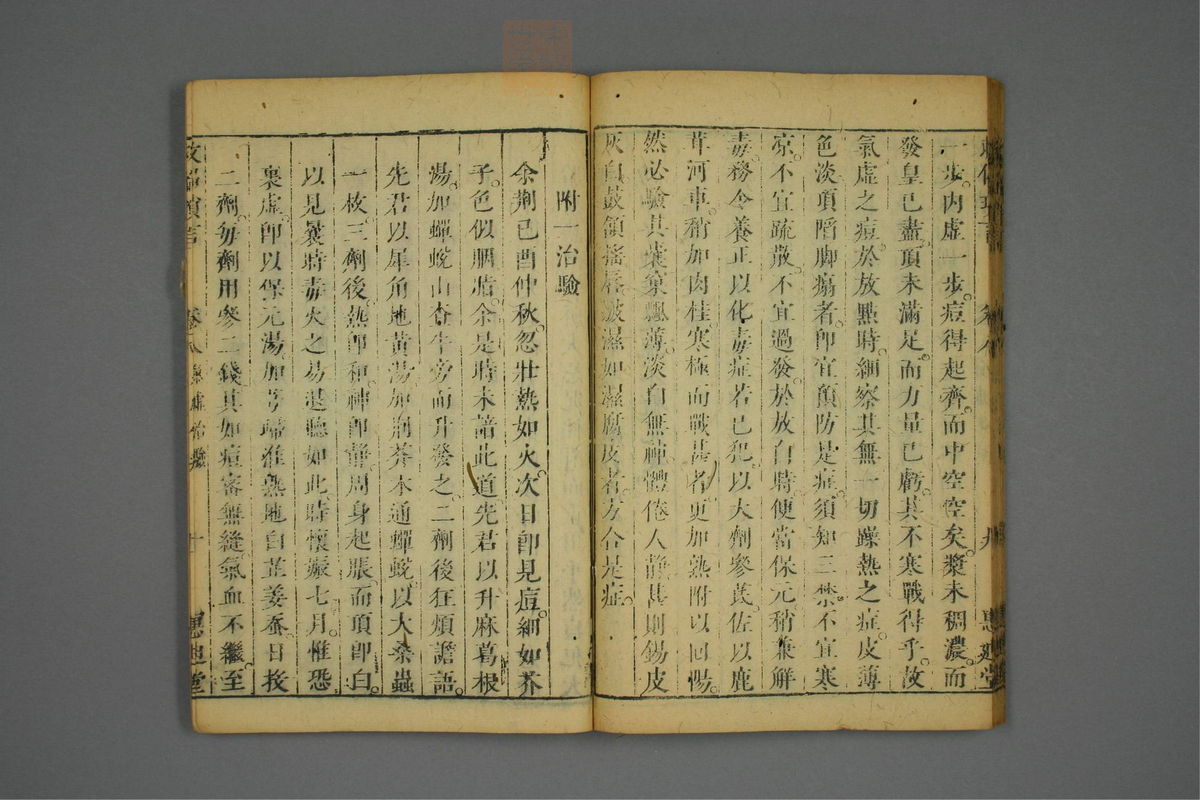 一步內虛一步痘得起齊而中空空矣漿未稠濃而
發皇已盡頂未滿足而力量已虧其不寒戰得乎故
氣虛之痘於放點時細察其無一切躁熱之症皮薄
色淡頂陷脚塌者卽宜預防是症須知三禁不宜寒
凉不宜疏散不宜過發於放白時便當保元稍兼解
毒務令養正以化毒症若已犯以大劑參芪佐以鹿
茸河車稍加肉桂寒極而戰甚者更加熟附以回陽
然必驗其葉窠飄薄淡白無神體倦人靜甚則錫皮
灰白鼓頷搖唇破濕如濕腐皮者方合是症
附一治驗
余荆已酉仲秋忽壯熱如火次日卽見痘細如芥
子色似胭脂余是時未諳此道先君以升麻葛根
湯加蟬蛻山查牛旁而升發之二劑後狂煩譫語
先君以犀角地黃湯加荆芥木通蟬蛻以大桑蟲
一枚三劑後熱卽和神卽靜周身起脹而頂卽白
以見曩時毒火之易退聽如此時懷娠七月惟恐
裏虛卽以保元湯加芎歸准熟地白芷姜蚕日投
二劑每劑用參二錢其如痘密無縫氣血不繼至